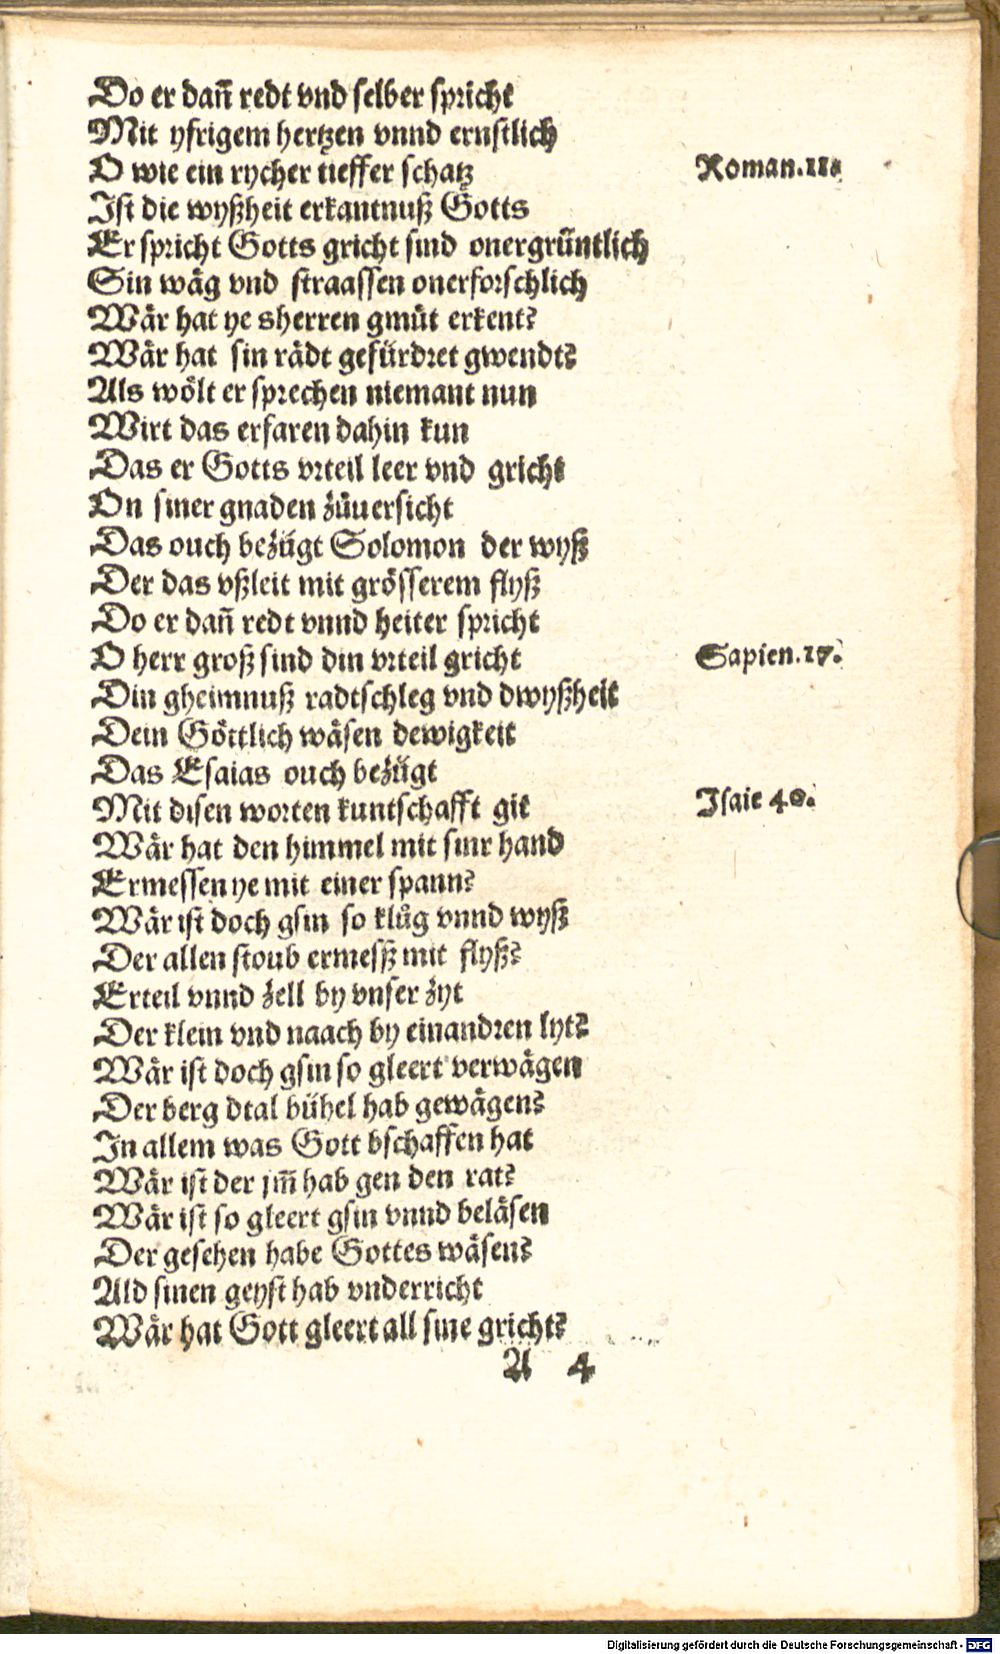 Do er dañ redt vnd selber spricht
Mit yfrigem hertzen vnnd ernstlich
O wie ein rycher tieffer schatz
Roman.11.
Ist die wyßheit erkantnuß Gotts
Er spricht Gotts gricht sind onergrüntlich
Sin wäg vnd straassen onerforschlich
Wär hat ye sherren gmüt erkent?
Wär hat sin rädt gefürdret gwendt?
Als wölt er sprechen niemant nun
Wirt das erfaren dahin kun
Das er Gotts vrteil leer vnd gricht
On siner gnaden züuersicht
Das ouch bezügt Solomon der wyß
Der das vßleit mit grösserem flyß
Do er dañ redt vnnd heiter spricht
O herr groß sind din vrteil gricht
Sapien.17.
Din gheimnuß radtschleg vnd dwyßheit
Dein Göttlich wäsen dewigkeit
Das Esaias ouch bezügt
Mit disen worten kuntschafft git
Isaie 40.
Wär hat den himmel mit sinr hand
Ermessen ye mit einer spann?
Wär ist doch gsin so klůg vnnd wyß
Der allen stoub ermesß mit flyß?
Erteil vnnd zell by vnser zyt
Der klein vnd naach by einandren lyt?
Wär ist doch gsin so gleert verwägen
Der berg dtal bühel hab gewägen?
In allem was Gott bschaffen hat
Wär ist der jm̃ hab gen den rat?
Wär ist so gleert gsin vnnd beläsen
Der gesehen habe Gottes wäsen?
Ald sinen geyst hab vnderricht
Wär hat Gott gleert all sine gricht?
A 4
Digitalisierung gefördert durch die Deutsche Forschungsgemeinschaft - DFG